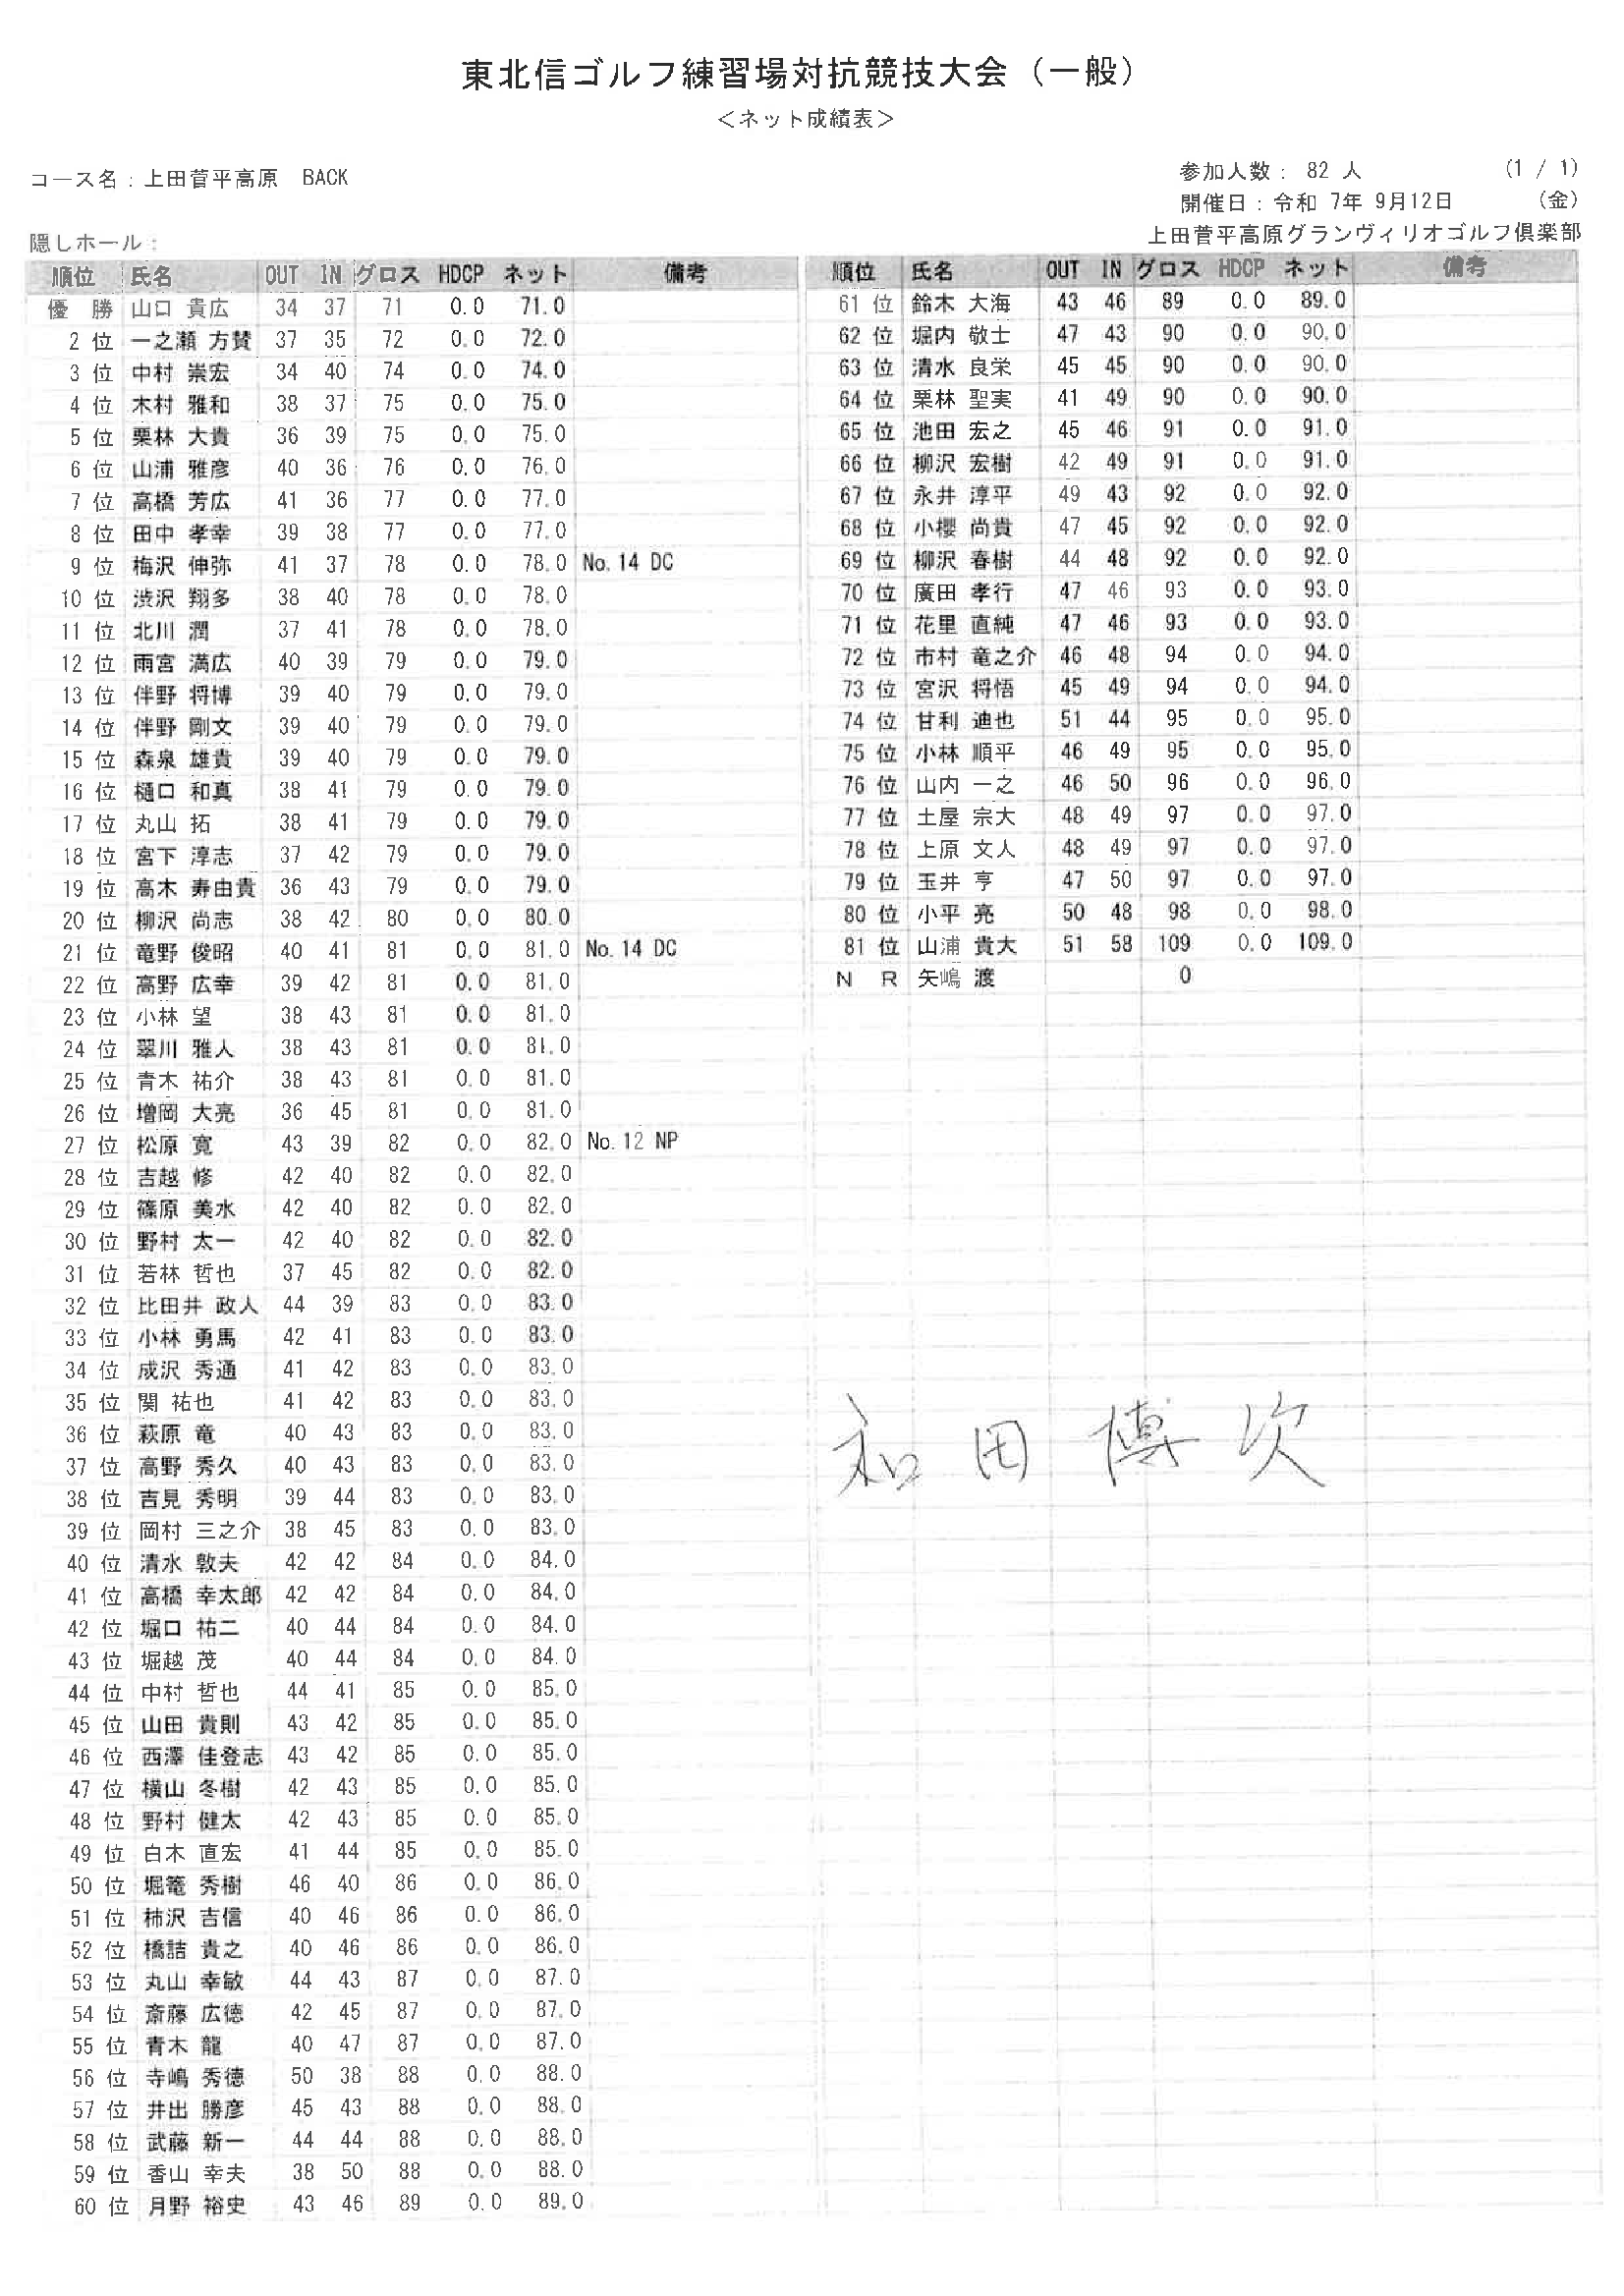 東北信ゴルフ練習場対抗競技大会（一般）
＜ネット成績表＞
コース名：上田菅平高原　BACK
参加人数： 82 人　(1 / 1)
開催日：令和 7年 9月12日　(金)
上田菅平高原グランヴィリオゴルフ倶楽部
隠しホール：
順位 氏名 OUT IN グロス HDCP ネット 備考
優　勝 山口 貴広 34 37 71 0.0 71.0
2 位 一之瀬 方賛 37 35 72 0.0 72.0
3 位 中村 崇宏 34 40 74 0.0 74.0
4 位 木村 雅和 38 37 75 0.0 75.0
5 位 栗林 大貴 36 39 75 0.0 75.0
6 位 山浦 雅彦 40 36 76 0.0 76.0
7 位 高橋 芳広 41 36 77 0.0 77.0
8 位 田中 孝幸 39 38 77 0.0 77.0
9 位 梅沢 伸弥 41 37 78 0.0 78.0 No.14 DC
10 位 渋沢 翔多 38 40 78 0.0 78.0
11 位 北川 潤 37 41 78 0.0 78.0
12 位 雨宮 満広 40 39 79 0.0 79.0
13 位 伴野 将博 39 40 79 0.0 79.0
14 位 伴野 剛文 39 40 79 0.0 79.0
15 位 森泉 雄貴 39 40 79 0.0 79.0
16 位 樋口 和真 38 41 79 0.0 79.0
17 位 丸山 拓 38 41 79 0.0 79.0
18 位 宮下 淳志 37 42 79 0.0 79.0
19 位 高木 寿由貴 36 43 79 0.0 79.0
20 位 柳沢 尚志 38 42 80 0.0 80.0
21 位 竜野 俊昭 40 41 81 0.0 81.0 No.14 DC
22 位 高野 広幸 39 42 81 0.0 81.0
23 位 小林 望 38 43 81 0.0 81.0
24 位 翠川 雅人 38 43 81 0.0 81.0
25 位 青木 祐介 38 43 81 0.0 81.0
26 位 増岡 大亮 36 45 81 0.0 81.0
27 位 松原 寛 43 39 82 0.0 82.0 No.12 NP
28 位 吉越 修 42 40 82 0.0 82.0
29 位 篠原 美水 42 40 82 0.0 82.0
30 位 野村 太一 42 40 82 0.0 82.0
31 位 若林 哲也 37 45 82 0.0 82.0
32 位 比田井 政人 44 39 83 0.0 83.0
33 位 小林 勇馬 42 41 83 0.0 83.0
34 位 成沢 秀通 41 42 83 0.0 83.0
35 位 関 祐也 41 42 83 0.0 83.0
36 位 萩原 竜 40 43 83 0.0 83.0
37 位 高野 秀久 40 43 83 0.0 83.0
38 位 吉見 秀明 39 44 83 0.0 83.0
39 位 岡村 三之介 38 45 83 0.0 83.0
40 位 清水 敦夫 42 42 84 0.0 84.0
41 位 高橋 幸太郎 42 42 84 0.0 84.0
42 位 堀口 祐二 40 44 84 0.0 84.0
43 位 堀越 茂 40 44 84 0.0 84.0
44 位 中村 哲也 44 41 85 0.0 85.0
45 位 山田 貴則 43 42 85 0.0 85.0
46 位 西澤 佳登志 43 42 85 0.0 85.0
47 位 横山 冬樹 42 43 85 0.0 85.0
48 位 野村 健太 42 43 85 0.0 85.0
49 位 白木 直宏 41 44 85 0.0 85.0
50 位 堀篭 秀樹 46 40 86 0.0 86.0
51 位 柿沢 吉信 40 46 86 0.0 86.0
52 位 橋詰 貴之 40 46 86 0.0 86.0
53 位 丸山 幸敏 44 43 87 0.0 87.0
54 位 斎藤 広徳 42 45 87 0.0 87.0
55 位 青木 龍 40 47 87 0.0 87.0
56 位 寺嶋 秀徳 50 38 88 0.0 88.0
57 位 井出 勝彦 45 43 88 0.0 88.0
58 位 武藤 新一 44 44 88 0.0 88.0
59 位 香山 幸夫 38 50 88 0.0 88.0
60 位 月野 裕史 43 46 89 0.0 89.0
順位 氏名 OUT IN グロス HDCP ネット 備考
61 位 鈴木 大海 43 46 89 0.0 89.0
62 位 堀内 敬士 47 43 90 0.0 90.0
63 位 清水 良栄 45 45 90 0.0 90.0
64 位 栗林 聖実 41 49 90 0.0 90.0
65 位 池田 宏之 45 46 91 0.0 91.0
66 位 柳沢 宏樹 42 49 91 0.0 91.0
67 位 永井 淳平 49 43 92 0.0 92.0
68 位 小櫻 尚貴 47 45 92 0.0 92.0
69 位 柳沢 春樹 44 48 92 0.0 92.0
70 位 廣田 孝行 47 46 93 0.0 93.0
71 位 花里 直純 47 46 93 0.0 93.0
72 位 市村 竜之介 46 48 94 0.0 94.0
73 位 宮沢 将悟 45 49 94 0.0 94.0
74 位 甘利 迪也 51 44 95 0.0 95.0
75 位 小林 順平 46 49 95 0.0 95.0
76 位 山内 一之 46 50 96 0.0 96.0
77 位 土屋 宗大 48 49 97 0.0 97.0
78 位 上原 文人 48 49 97 0.0 97.0
79 位 玉井 亨 47 50 97 0.0 97.0
80 位 小平 亮 50 48 98 0.0 98.0
81 位 山浦 貴大 51 58 109 0.0 109.0
Ｎ　Ｒ 矢嶋 渡 0
和田 博次